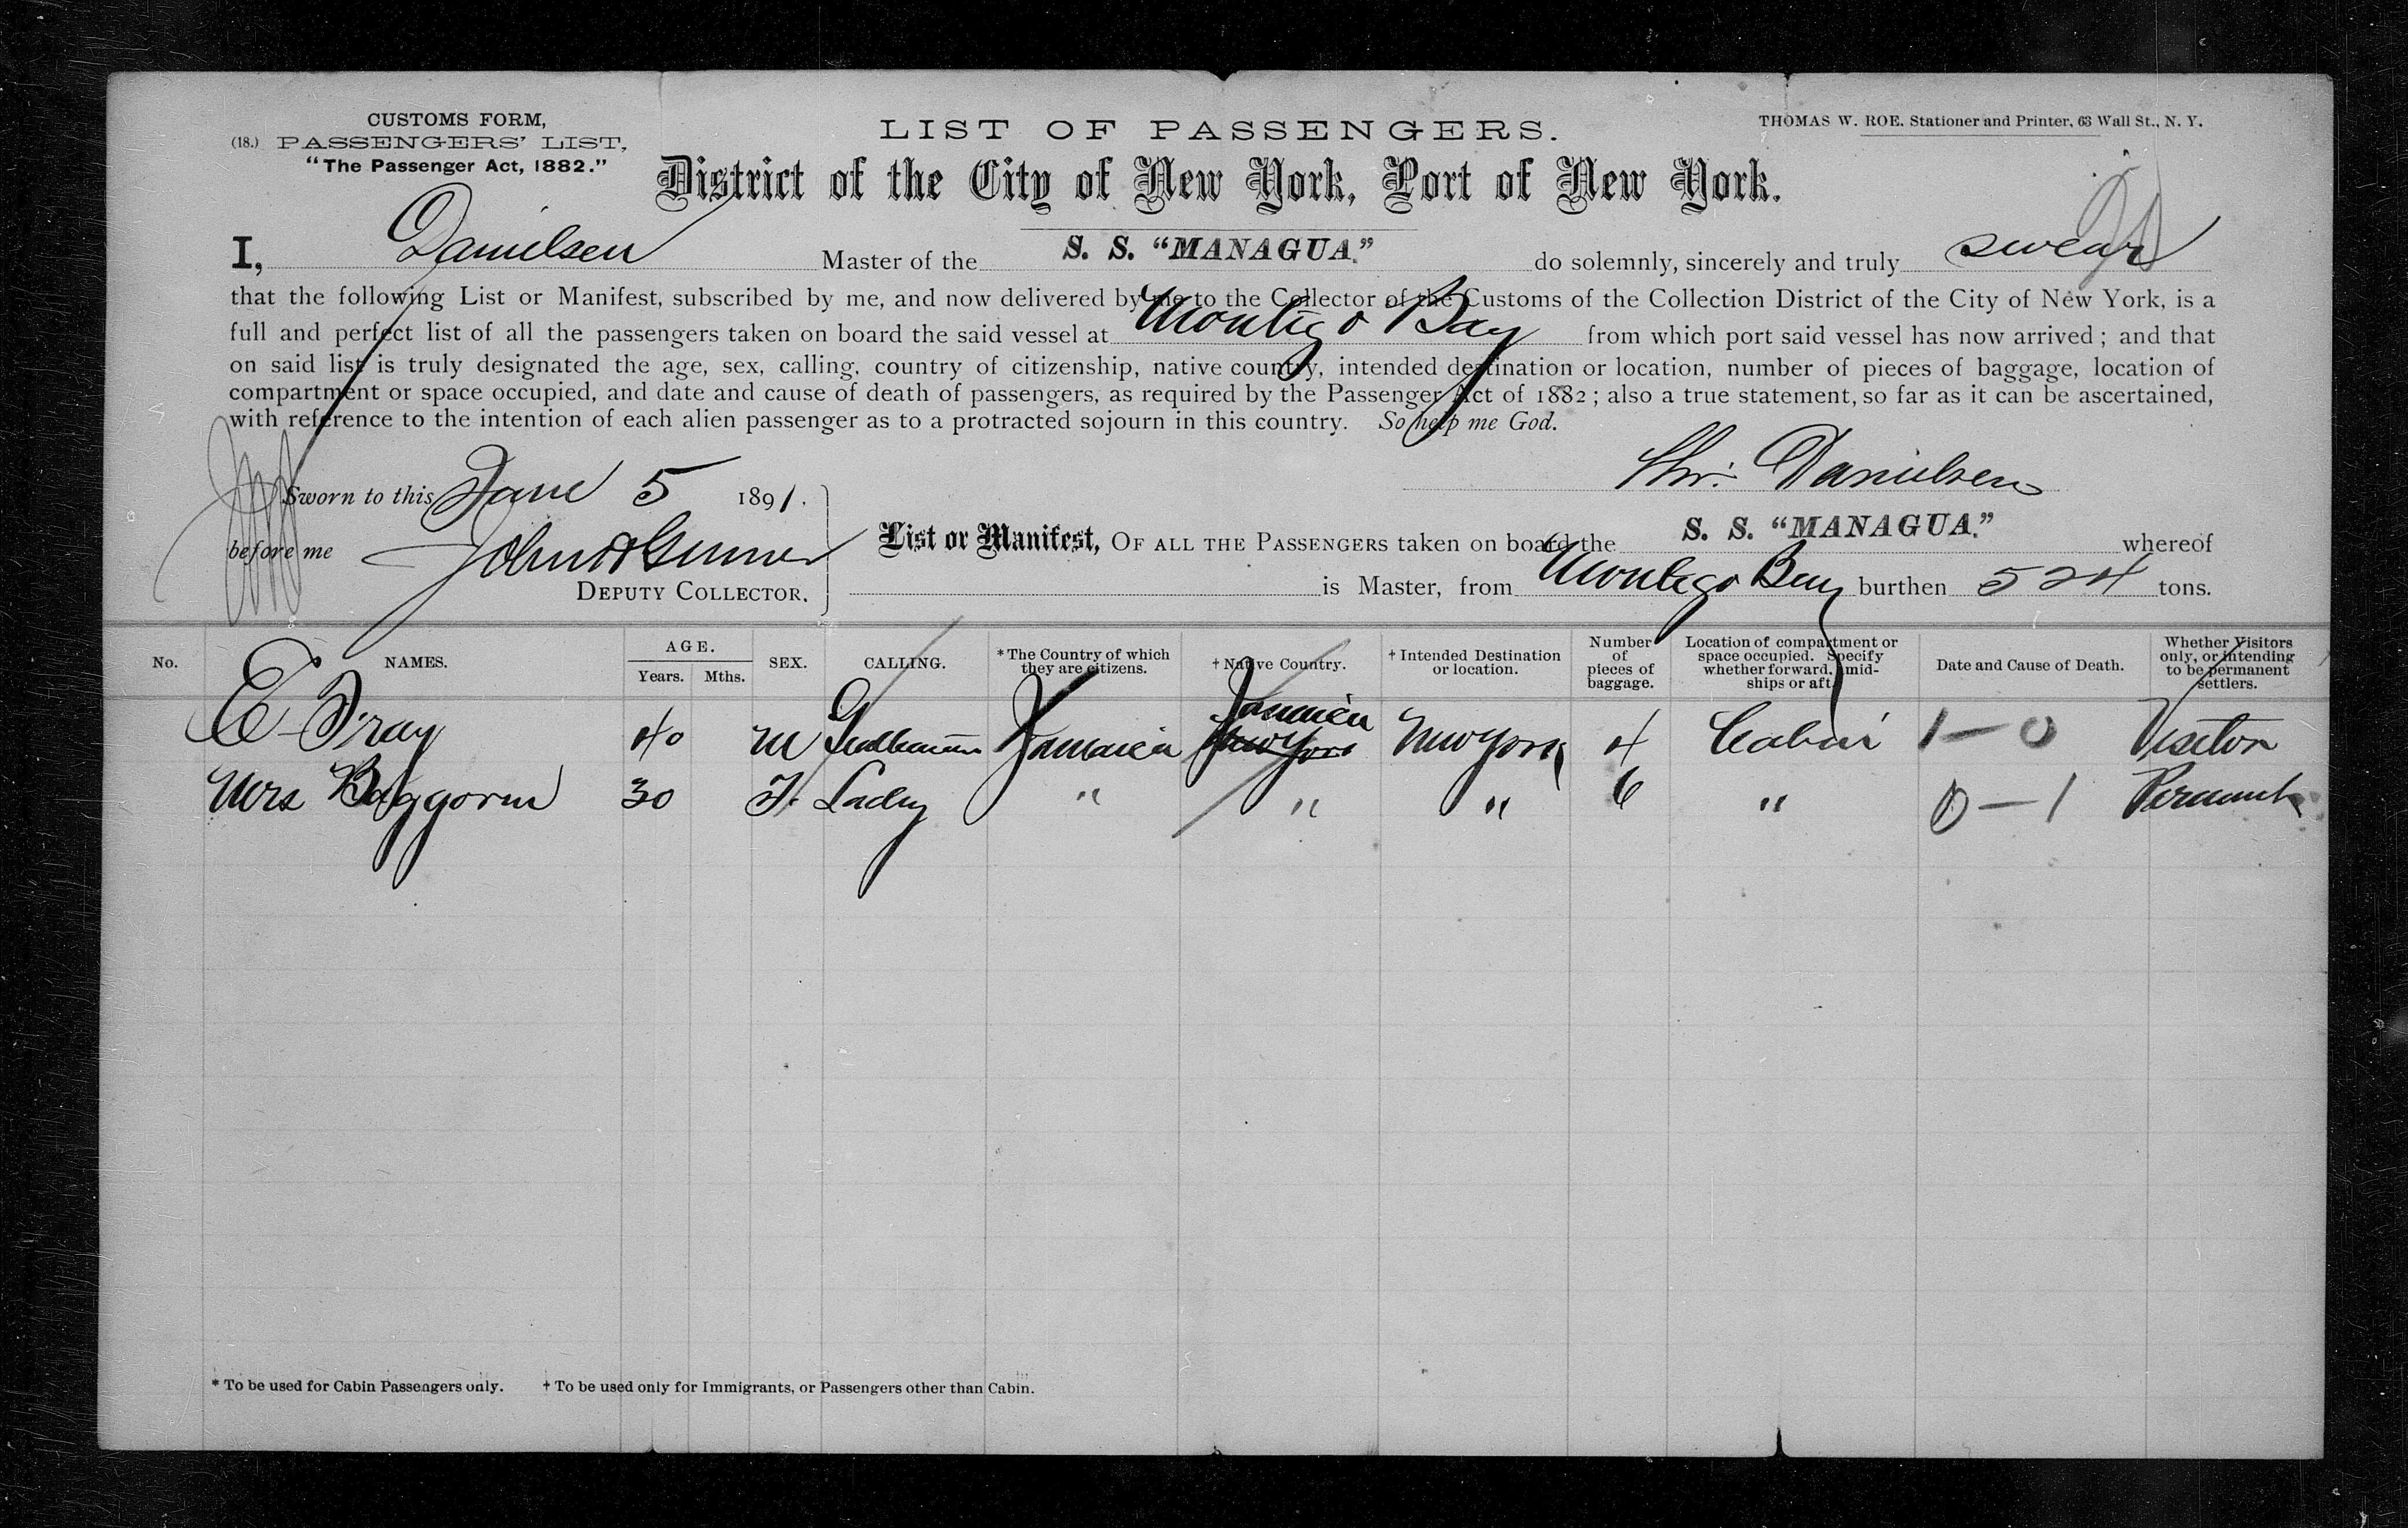 CUSTOMS FORM,
(18.) PASSENGERS' LIST,
"The Passenger Act, 1882."
LIST OF PASSENGERS.
THOMAS W. ROE. Stationer and Printer, 63 Wall St., N. Y.
District of the City of New York, Port of New York.
I, Danielsen Master of the S. S. "MANAGUA." do solemnly, sincerely and truly swear
that the following List or Manifest, subscribed by me, and now delivered by me to the Collector of the Customs of the Collection District of the City of New York, is a
full and perfect list of all the passengers taken on board the said vessel at Montego Bay from which port said vessel has now arrived; and that
on said list is truly designated the age, sex, calling, country of citizenship, native country, intended destination or location, number of pieces of baggage, location of
compartment or space occupied, and date and cause of death of passengers, as required by the Passenger Act of 1882; also a true statement, so far as it can be ascertained,
with reference to the intention of each alien passenger as to a protracted sojourn in this country. So help me God.
Chr. Danielsen
Sworn to this June 5 1891.
before me John
DEPUTY COLLECTOR.
List or Manifest, OF ALL THE PASSENGERS taken on board the S. S. "MANAGUA." whereof
is Master, from Montego Bay burthen 524 tons.
No. NAMES. AGE. Years. Mths. SEX. CALLING. * The Country of which they are citizens. † Native Country. † Intended Destination or location. Number of pieces of baggage. Location of compartment or space occupied. Specify whether forward, amidships or aft. Date and Cause of Death. Whether Visitors only, or intending to be permanent settlers.
E Fray 40 M Gentleman Jamaica New York Jamaica New York 4 Cabin 1-0 Visitor
Mrs 30 F. Lady " " " 6 " 0-1 Permanent
* To be used for Cabin Passengers only. † To be used only for Immigrants, or Passengers other than Cabin.